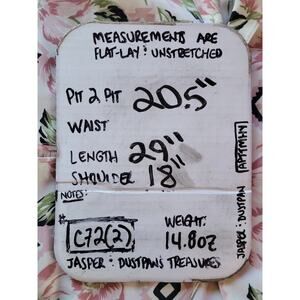 MEASUREMENTS ARE
FLAT-LAY : UNSTRETCHED
PIT 2 PIT 20.5"
WAIST
LENGTH 29"
SHOULDER 18"
NOTES:
C72(2)
WEIGHT:
14.8oz
JASPER : DUSTPAN'S TREASURES
JASPER : DUSTPAN